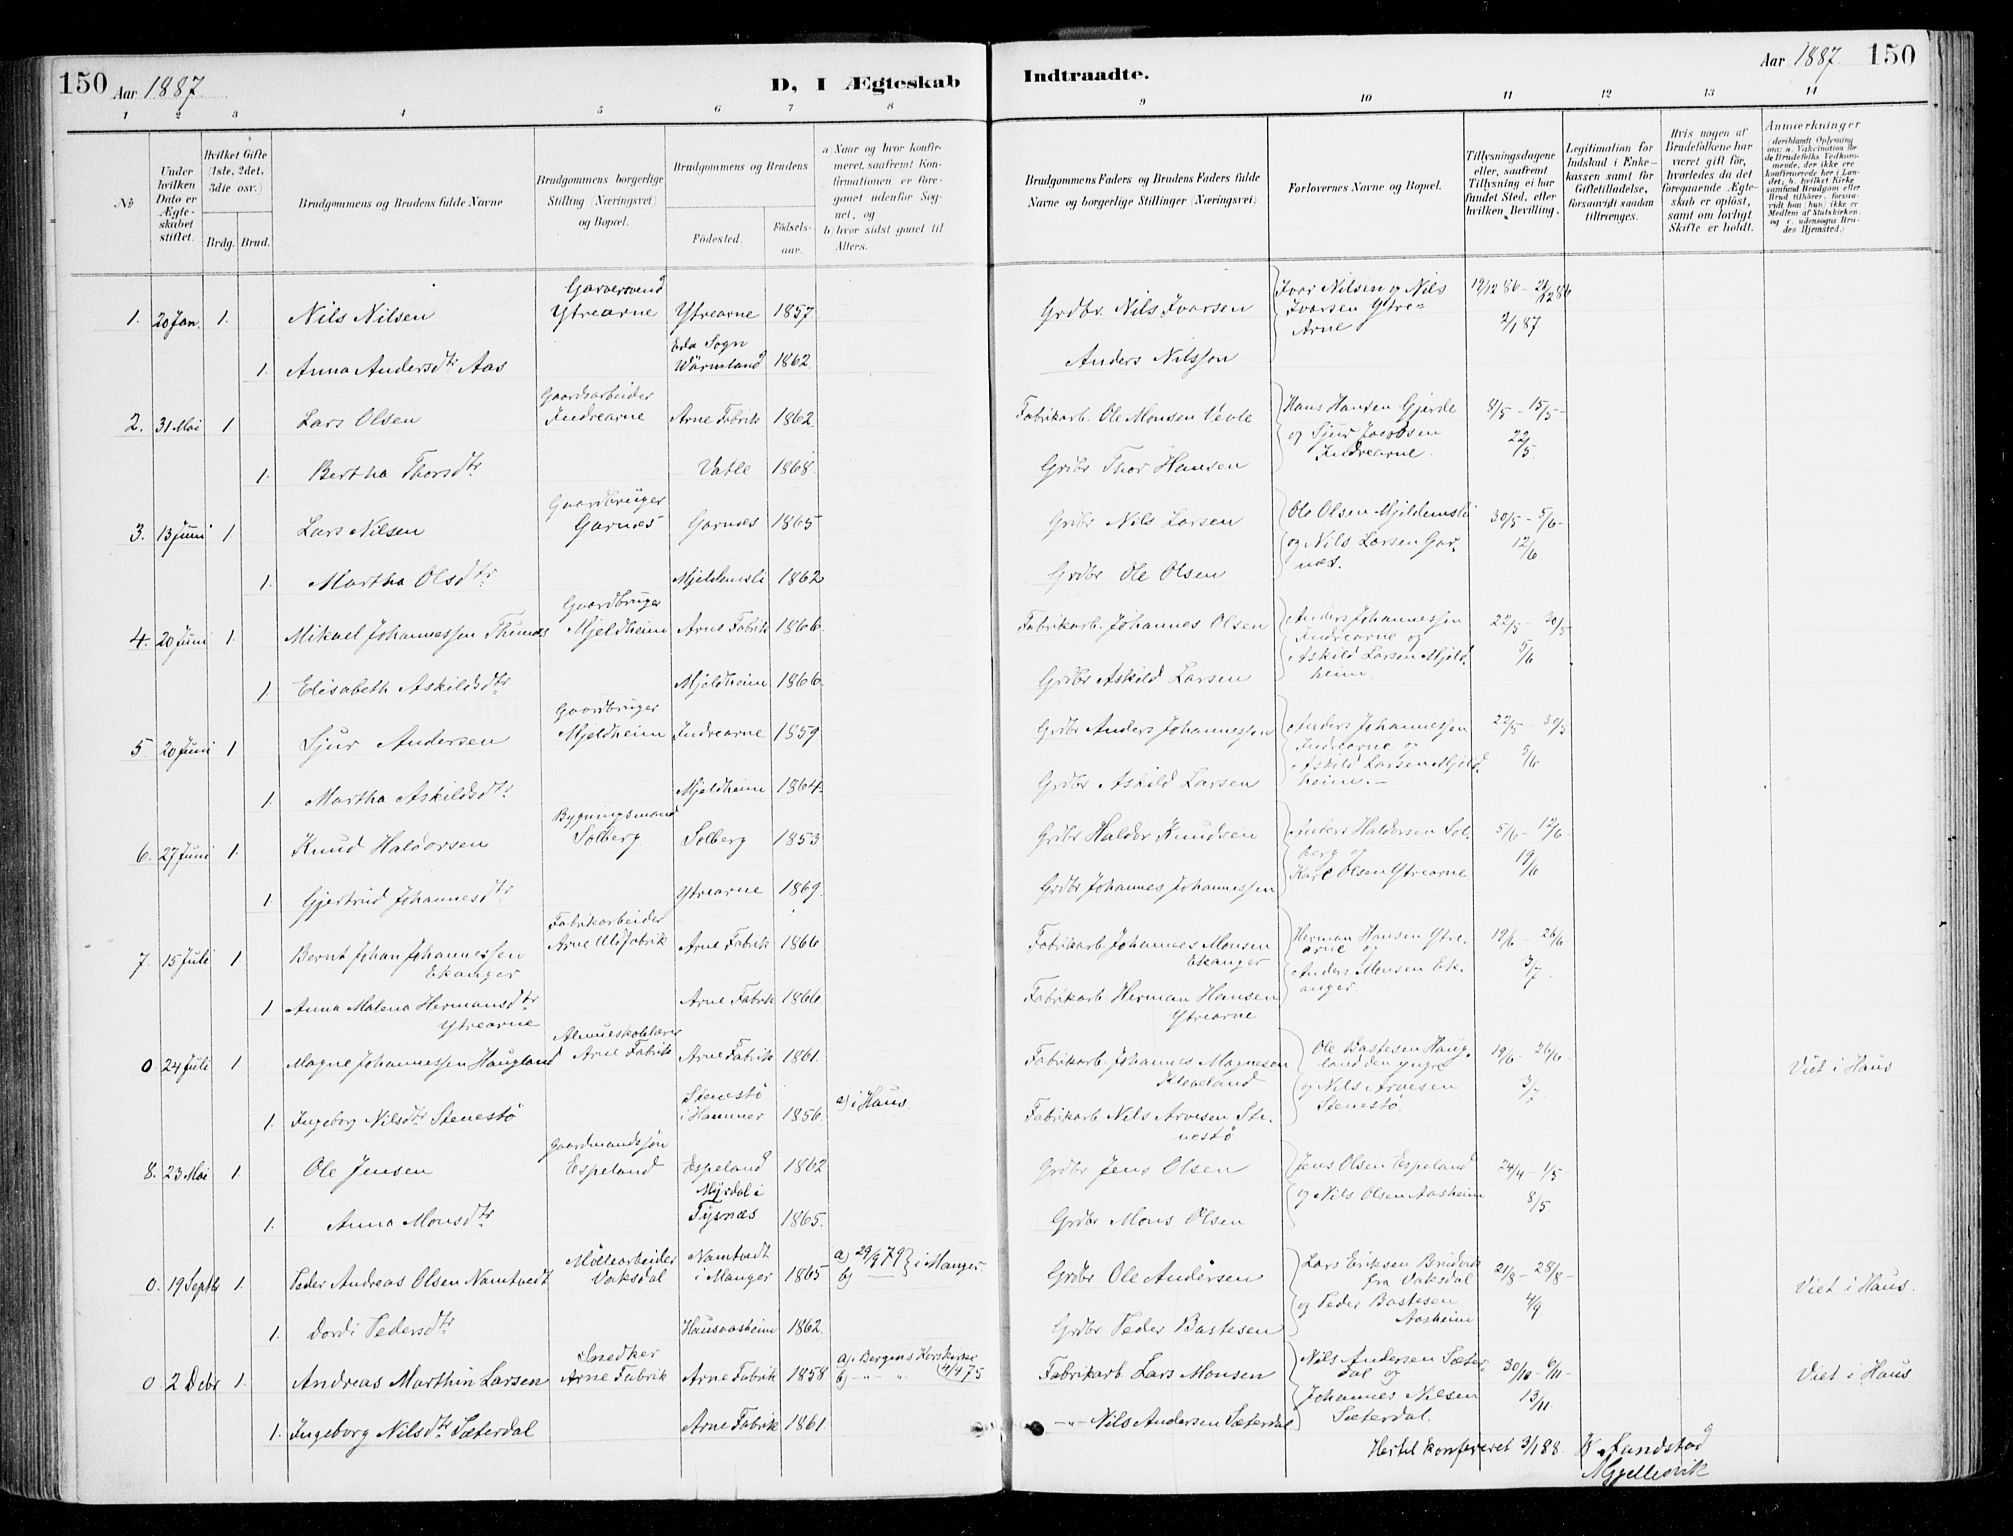 150 Aar 1887. D, I Ægteskab Indtraadte. Aar 1887 150
1 2 3 4 5 6 7 8 9 10 11 12 13 14
No
Under hvilken Dato er Ægteskabet stiftet.
Hvilket Gifte (1ste, 2det, 3die osv.)
Brdg. Brud.
Brudgommens og Brudens fulde Navne
Brudgommens borgerlige Stilling (Næringsvei) og Bopæl.
Brudgommens og Brudens
Födested. Födsels-aar.
a) Naar og hvor konfirmeret, saafremt Konfirmationen er foregaaet udenfor Sognet, og
b) hvor sidst gaaet til Alters.
Brudgommens Faders og Brudens Faders fulde Navne og borgerlige Stillinger (Næringsvei)
Forlovernes Navne og Bopæl.
Tillysningsdagene eller, saafremt Tillysning ei har fundet Sted, efter hvilken Bevilling.
Legitimation for Indskud i Enkekassen samt for Giftetilladelse, forsaavidt saadan tiltrænges.
Hvis nogen af Brudefolkene har været gift för, hvorledes da det foregaaende Ægteskab er oplöst, samt om lovligt Skifte er holdt.
Anmærkninger
(deriblandt Oplysning om: a. Vakcination for de Brudefolks Vedkommende, der ikke ere konfirmerede her i Landet; b. hvilket Kirkesamfund Brudgom eller Brud tilhörer, forsaavidt han (hun) ikke er Medlem af Statskirken, og c. udensogns Brudes Hjemsted.)
1. 20 Jan. 1. Nils Nilsen Garversvend Ytrearne Ytrearne 1857 Grdbr. Nils Ivarsen Ivar Nilsen og Nils Ivarsen Ytre-Arne 19/12 86 - 26/12 86 2/1 87
1. Anna Andersdtr Aas Eda Sogn Wärmland 1862. Anders Nilsson
2. 31 Mai 1 Lars Olsen Gaardsarbeider Indrearne Arne Fabrik 1862. Fabrikarb. Ole Monsen Vevle Hans Hansen Gjerde og Sjur Jacobsen Indrearne. 8/5 - 15/5 - 22/5.
1. Bertha Thorsdtr Vatle 1868. Grdbr Thor Hansen
3. 13 Juni 1 Lars Nilsen Gaardbruger Garnæs Garnæs 1865 Grdbr Nils Larsen Ole Olsen Mjeldemsli og Nils Larsen Garnæs. 30/5 - 5/6 - 12/6.
1. Martha Olsdtr Mjeldemsli 1862 Grdbr Ole Olsen
4. 20 Juni 1. Mikael Johannessen Thunæs Gaardbruger Mjeldheim Arne Fabrik 1866. Fabrikarb. Johannes Olsen Anders Johannessen Indrearne og Askild Larsen Mjeldheim. 22/5 - 30/5 5/6
1. Elisabeth Askildsdtr Mjeldheim 1866. Grdbr Askild Larsen
5 20 Juni 1 Sjur Andersen Gaardbruger Mjeldheim Indrearne 1859 Grdbr Anders Johannessen Anders Johannessen Indrearne og Askild Larsen Mjeldheim. - 22/5 - 30/5 5/6
1. Martha Askildsdtr Mjeldheim 1864. Grdbr Askild Larsen
6. 27 Juni 1. Knud Haldorsen Bygningsmand Solberg Solberg 1853 Grdbr Haldor Knudsen Anders Haldorsen Solberg og Karl Olsen Ytrearne 5/6 - 12/6. 19/6
1. Gjertrud Johannesdtr Ytrearne 1869. Grdbr Johannes Johannessen
7. 15 Juli 1 Bernt Johan Johannessen Ekanger Fabrikarbeider Arne Uldfabrik Arne Fabrik 1866 Fabrikarb. Johannes Monsen Ekanger Herman Hansen Ytrearne og Anders Monsen Ekanger. 19/6 - 26/6 3/7.
1 Anna Malena Hermansdtr Ytrearne Arne Fabrik 1866 Fabrikarb. Herman Hansen Ytrearne
0. 24 Juli 1 Magne Johannessen Haugland Almueskolelærer Arne Fabrik Arne Fabrik 1861 Fabrikarb. Johannes Magnesen Kleveland Ole Bastesen Haugland den yngre og Nils Arvesen Stenestö. 19/6 - 26/6 - 3/7 Viet i Haus
1. Ingeborg Nilsdtr Stenestö Stenestö i Hammer 1856. a) i Haus. Fabrikarb. Nils Arvesen Stenestö
8. 23 Mai 1. Ole Jensen Gaardmandssön Espeland Espeland 1862 Grdbr Jens Olsen Jens Olsen Espeland og Nils Olsen Aasheim 24/4 - 1/5 8/5
1. Anna Monsdtr Myrdal i Tysnæs 1865. Grdbr Mons Olsen
0. 19 Septbr 1. Peder Andreas Olsen Namtvedt Möllearbeider Vaksdal Namtvedt i Manger 1865 a) 29/9 79 b) — i Manger. Grdbr Ole Andersen Lars Eriksen Bruvik fra Vaksdal og Peder Bastesen Aasheim 21/8 - 28/8 - 4/9 Viet i Haus.
1. Dordi Pedersdtr Hausaasheim 1862. Grdbr Peder Bastesen
0 2 Debr 1. Andreas Marthin Larsen Snedker Arne Fabrik Arne Fabrik 1858 a). Bergens Korskirke 4/4 75 b) -"- " Fabrikarb Lars Monsen Nils Andersen Sæterdal og Johannes Nilsen Sæterdal. 30/10 - 6/11 - 13/11. Viet i Haus
1. Ingeborg Nilsdtr Sæterdal Arne Fabrik 1861. -"- Nils Andersen Sæterdal
Hertil konfereret 3/1 88.